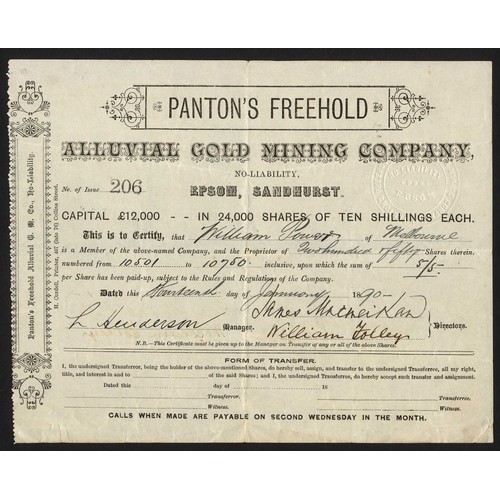 PANTON'S FREEHOLD
ALLUVIAL GOLD MINING COMPANY,
NO-LIABILITY,
No. of Issue 206
EPSOM, SANDHURST.
CAPITAL £12,000 - - IN 24,000 SHARES OF TEN SHILLINGS EACH.
This is to Certify, that William Power of Melbourne
is a Member of the above-named Company, and the Proprietor of Two hundred & fifty Shares therein,
numbered from 10501 to 10750 inclusive, upon which the sum of 5/5-
per Share has been paid-up, subject to the Rules and Regulations of the Company.
Dated this Fourteenth day of January 1890-
L Henderson Manager. William Tolley Directors.
N.B.—This Certificate must be given up to the Manager on Transfer of any or all of the above Shares.
FORM OF TRANSFER.
I, the undersigned Transferror, being the holder of the above-mentioned Shares, do hereby sell, assign, and transfer to the undersigned Transferree, all my right,
title, and interest in and to of the said Shares; and I, the undersigned Transferree, do hereby accept such transfer and assignment.
Dated this day of 18
Transferror. Transferree.
Witness. Witness.
CALLS WHEN MADE ARE PAYABLE ON SECOND WEDNESDAY IN THE MONTH.
Panton's Freehold Alluvial G. M. Co., No-Liability.
Collins Street.